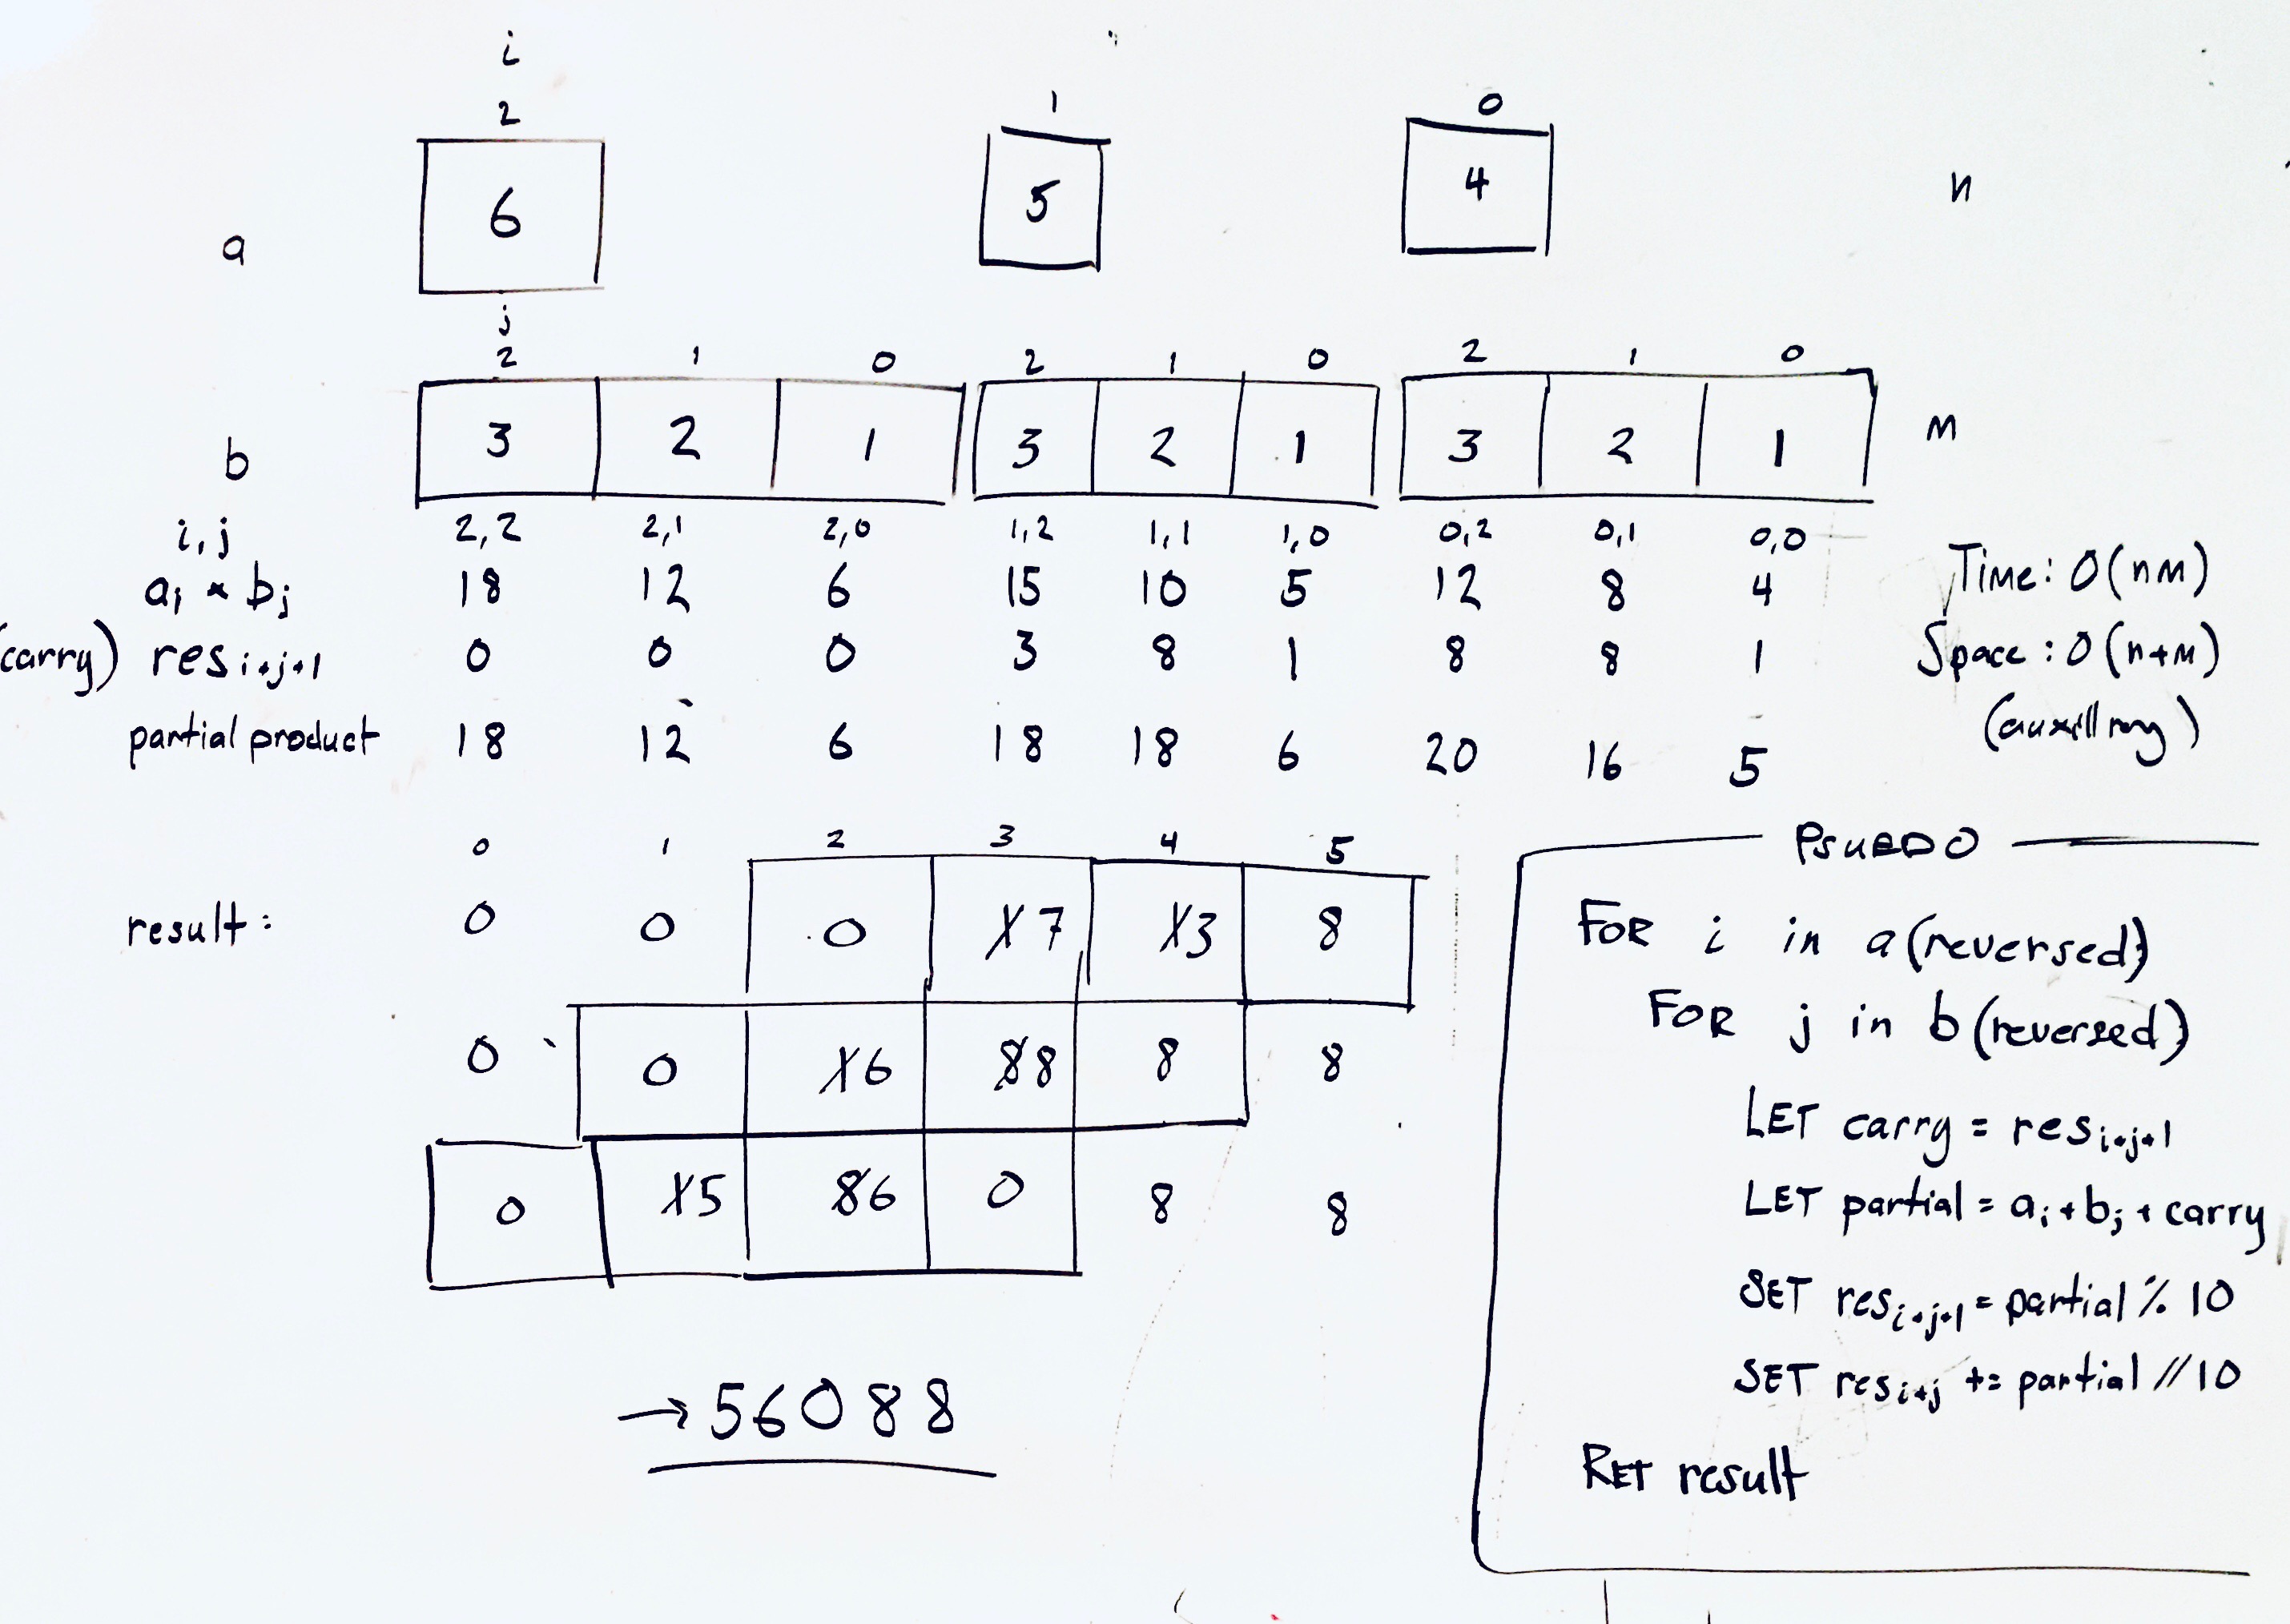 i
2 1 0
a 6 5 4 n
j
2 1 0 2 1 0 2 1 0
b 3 2 1 3 2 1 3 2 1 m
i,j 2,2 2,1 2,0 1,2 1,1 1,0 0,2 0,1 0,0
ai * bj 18 12 6 15 10 5 12 8 4
(carry) resi+j+1 0 0 0 3 8 1 8 8 1
partial product 18 12 6 18 18 6 20 16 5
Time: O(nm)
Space: O(n+m)
(auxillray)
0 1 2 3 4 5
result: 0 0 0 1 7 1 3 8
0 0 1 6 8 8 8 8
0 1 5 8 6 0 8 8
→ 56088
PSUEDO
FOR i in a (reversed)
FOR j in b (reversed)
LET carry = resi+j+1
LET partial = ai * bj + carry
SET resi+j+1 = partial % 10
SET resi+j += partial // 10
RET result